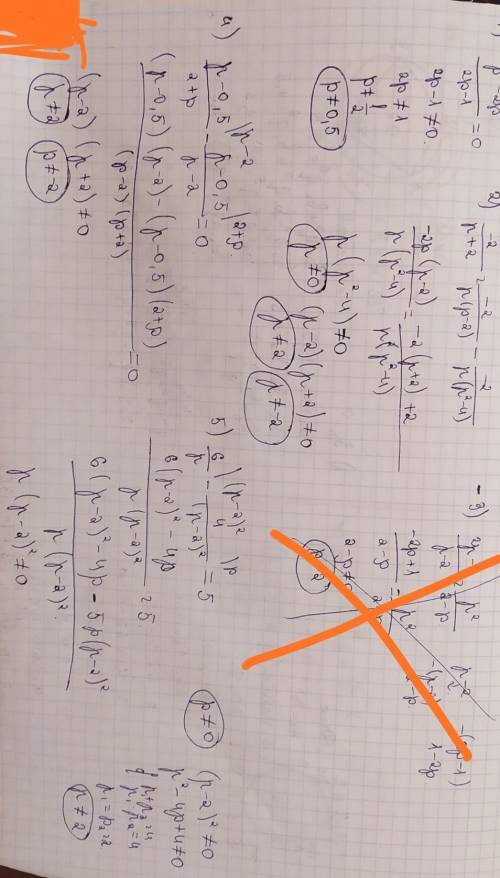 1)
p² - 2p / 2p-1 = 0
2p-1 ≠ 0
2p ≠ 1
p ≠ 1/2
p ≠ 0,5
2)
-2/(p+2) = -2/(p(p-2)) - -2/(p(p²-4))
-2p(p-2)/(p(p²-4)) = (-2(p+2)+2)/(p(p²-4))
p(p²-4) ≠ 0
p ≠ 0
(p-2)(p+2) ≠ 0
p ≠ 2
p ≠ -2
3)
-2p+1/2-p = p²
2-p ≠ 0
1-2p
4)
p-0,5/2+p |p-2 - p-0,5/p-2 |2+p = 0
(p-0,5)(p-2) - (p-0,5)(2+p)/(p-2)(p+2) = 0
(p-2)(p+2) ≠ 0
p ≠ 2
p ≠ -2
5)
6/p |(p-2)² - 4/(p-2)² |p = 5
6(p-2)² - 4p/p(p-2)² = 5
6(p-2)² - 4p - 5p(p-2)²/p(p-2)²
p(p-2)² ≠ 0
p ≠ 0
(p-2)² ≠ 0
p² - 4p + 4 ≠ 0
p₁+p₂=4
p₁·p₂=4
p₁=p₂=2
p ≠ 2